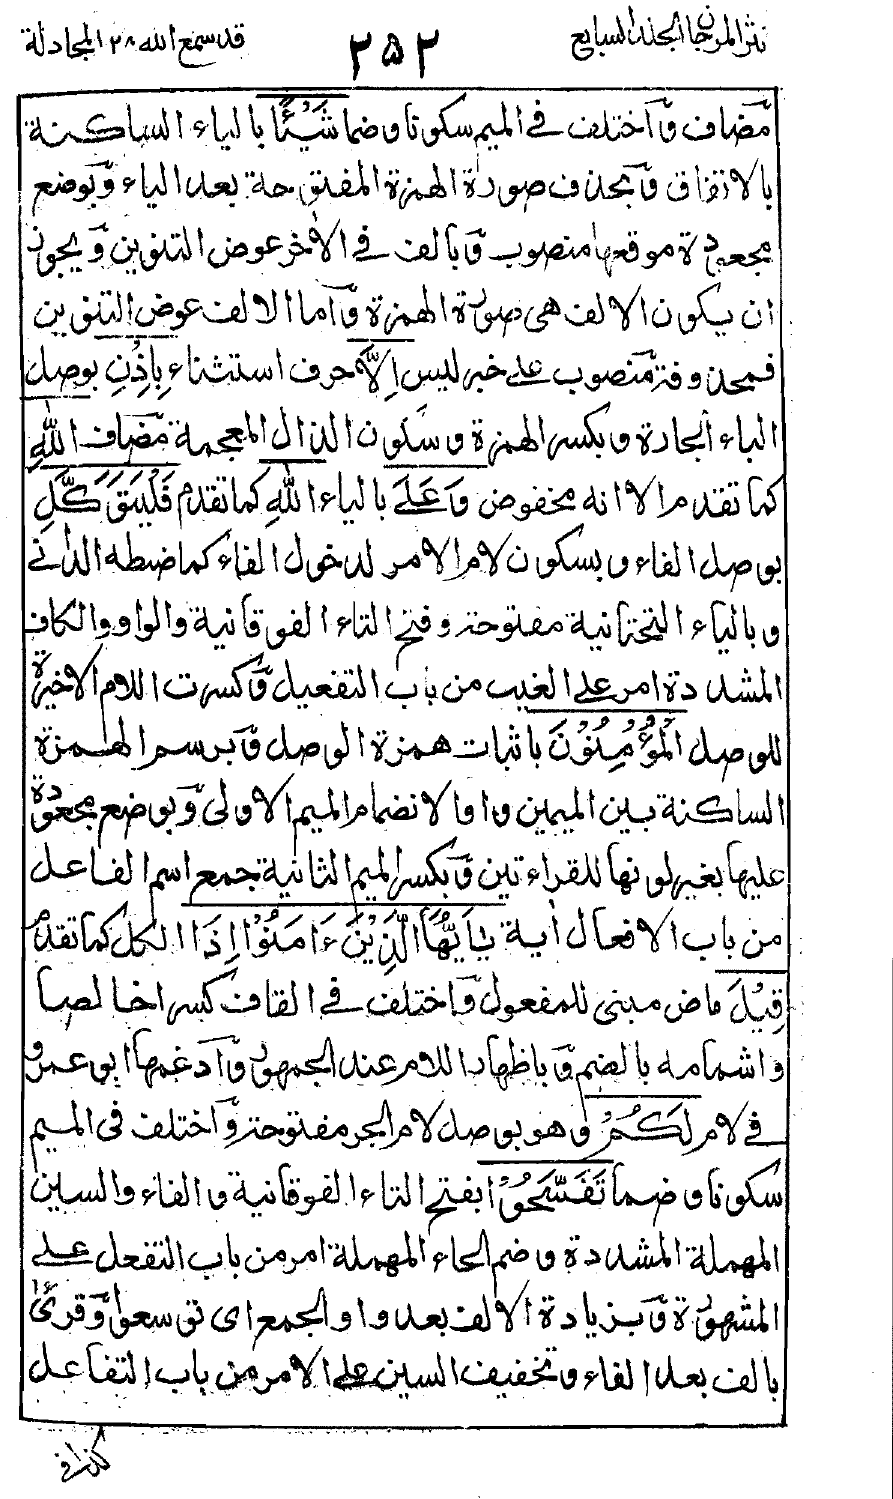 نثر المرجان الجلد السابع
٢٥٢
قد سمع الله ٢٨ المجادلة
مضاف وآختلف في الميم سكونا وضما شَيْئًا بالياء الساكنة
بالاتفاق وبحذف صورة الهمزة المفتوحة بعد الياء وبوضع
مجعودة موقعها منصوب وبالف في الاٰخر عوض التنوين ويجوز
ان يكون الالف هي صورة الهمزة وآما الالف عوض التنوين
فمحذوفة منصوب على خبر ليس اِلَّا حرف استثناء بِاِذْنِ بوصل
الباء الجارة وبكسر الهمزة وسكون الذال المعجمة مضاف اللّٰهِ
كما تقدم الا انه مخفوض وَعَلَى بالياء اللّٰهِ كما تقدم فَلْيَتَوَكَّلِ
بوصل الفاء وبسكون لام الامر لدخول الفاء كما ضبطه الداني
وبالياء التحتانية مفتوحة وفتح التاء الفوقانية والواو والكاف
المشددة امر على الغيب من باب التفعيل وكسرت اللام الاخيرة
للوصل الْمُؤْمِنُوْنَ باثبات همزة الوصل وبرسم الهمزة
الساكنة بين الميمين واوا لانضمام الميم الاولى وبوضع مجعودة
عليها بغير لونها للقراءتين وبكسر الميم الثانية جمع اسم الفاعل
من باب الافعال اٰية يٰٓاَيُّهَا الَّذِيْنَ ءَامَنُوْٓا اِذَا الكل كما تقدم
قِيْلَ ماض مبني للمفعول وآختلف في القاف كسرا خالصا
واشمامه بالضم وباظهار اللام عند الجمهور وآدغمها ابو عمرو
في لام لَكُمْ وهو بوصل لام الجر مفتوحة وآختلف في الميم
سكونا وضما تَفَسَّحُوْا بفتح التاء الفوقانية والفاء والسين
المهملة المشددة وضم الحاء المهملة امر من باب التفعل على
المشهورة وبزيادة الالف بعد واو الجمع اى توسعوا وقرئ
بالف بعد الفاء وتخفيف السين على الامر من باب التفاعل